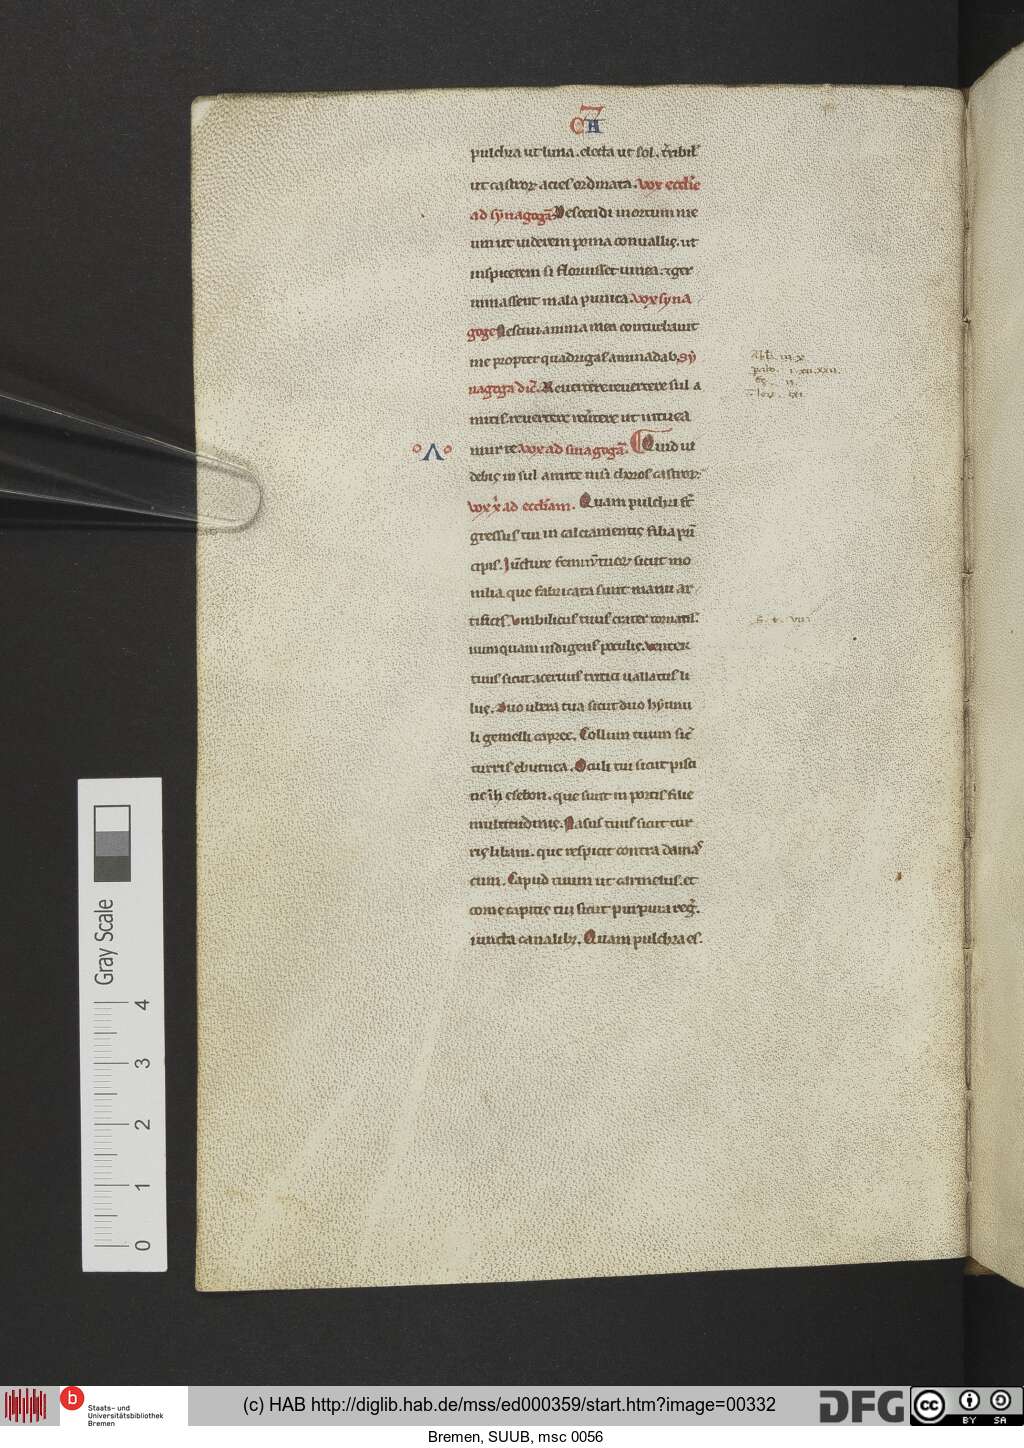 pulchra ut luna. electa ut sol. t̄ribil̄
ut castroꝝ acies ordinata. Vox eccl̄ie
ad synagogā. Descendi in ortum me
um ut viderem poma conuallis. ut
inspicerem si floruisset uinea. ⁊ ger
minassent mala punica. Vox syna
goge Nesciui anima mea conturbauit
me propter quadrigas aminadab. Sy
nagoga dic̄. Reuertere reuertere sul a
mitis. reuertere reu̅tere ut intuea
mur te. Vox ad sinagogā. Quid ui
debis in sul amite nisi choros castroꝝ.
Vox x̄ ad eccl̄iam. Quam pulchri s̄t
gressus tui in calciamentis filia pri̅
cipis. Iūcture feminū tuoꝝ sicut mo
nilia. que fabricata sunt manu ar
tificis. Vmbilicus tuus crater tornatil̄.
nunquam indigens poculis. Venter
tuus sicut aceruus tritici uallatus li
liis. Duo ubera tua sicut duo hynnu
li gemelli capree. Collum tuum sic̄
turris eburnea. Oculi tui sicut pisci
ne ī hesebon. que sunt in portis filie
multitudinis. Nasus tuus sicut tur
ris libani. que respicit contra damas
cum. Caput tuum ut carmelus. et
come capitis tui sicut purpura reg̅.
iuncta canalibꝫ. Quam pulchra es.
Gray Scale
4
3
2
1
0
b
Staats- und
Universitätsbibliothek
Bremen
(c) HAB http://diglib.hab.de/mss/ed000359/start.htm?image=00332
DFG
cc
BY SA
Bremen, SUUB, msc 0056